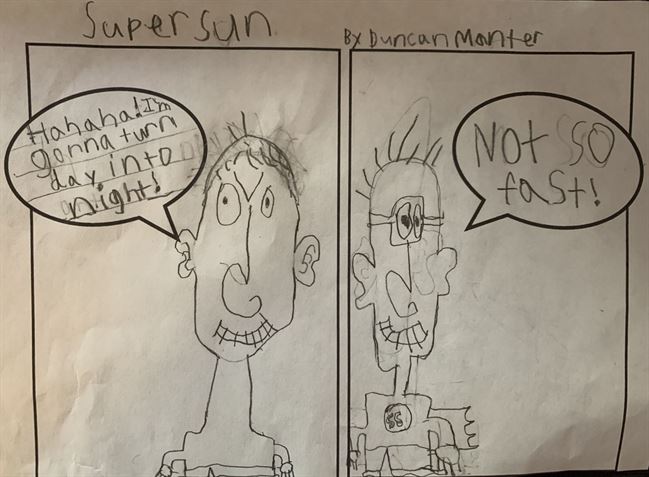 Super Sun
By Duncan Manter
Hahaha! I'm
gonna turn
day into
night!
Not so
fast!
SS